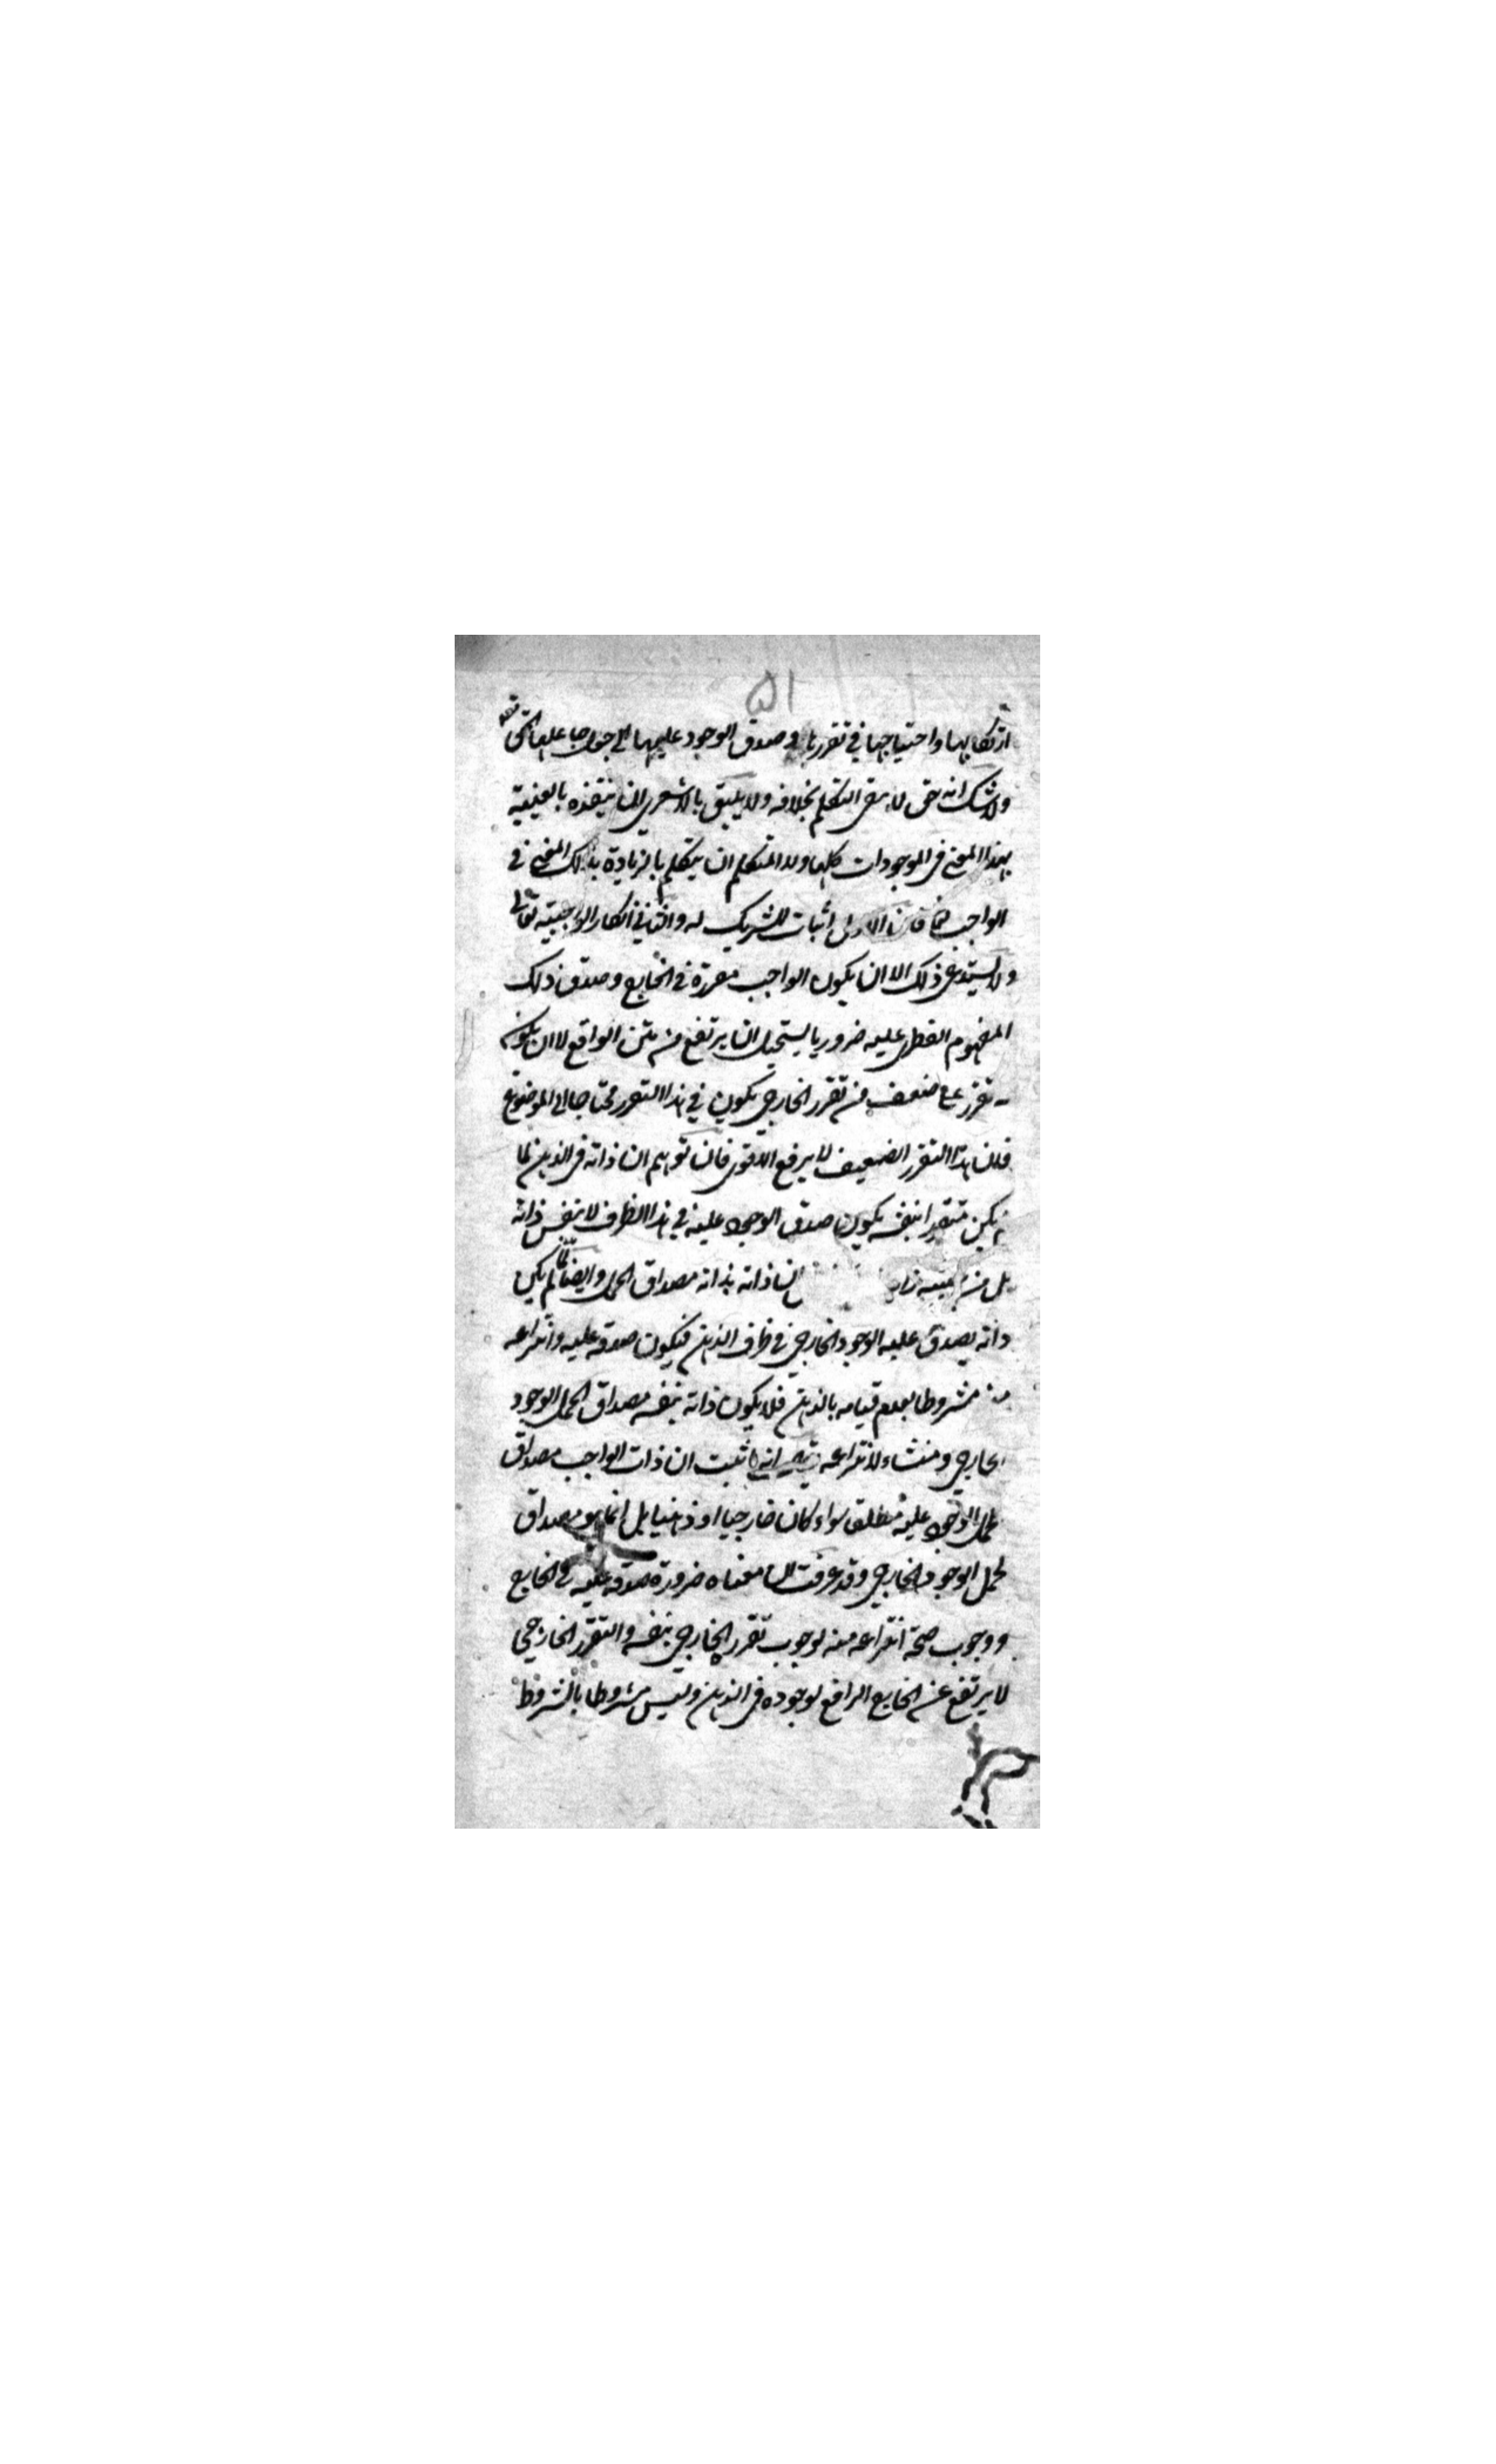 ۵۱
ارتكابها واحتياجها في تقررها وصدق الوجود عليها الى جواب
ولا شك انه حق لا يبقى التكلم بخلافه ولا يليق بالاشعري ان يتفوه بالعينية
بهذا المعنى في الموجودات كلها ولا المتكلم ان يتكلم بالزيادة بذلك المعنى في
الواجب فان الاول اثبات الشريك له والثاني انكار الواجبية تعالى
ولا يستدعي ذلك الا ان يكون الواجب مقررة في الخارج وصدق ذلك
المفهوم الفطري عليه ضروريا يستحيل ان يرتفع من متن الواقع لا ان يكون
تقرر ضعيف من تقرر الخارجي يكون في هذا التقرر محتاجا الى الموضوع
فان هذا التقرر الضعيف لا يرفع الاقوى فان توهم ان ذاته في الذهن لما
لم يكن متقررا بنفسه يكون صدق الوجود عليه في هذا الظرف لا بنفس ذاته
بل من ان ذاته بذاته مصداق الحمل وايضا لما لم يكن
ذاته يصدق عليه الوجود الخارجي في ظرف الذهن فيكون صدقه عليه وانتزاعه
منه مشروطا بعدم قيامه بالذهن فلا يكون ذاته بنفسه مصداق الحمل الوجود
الخارجي ومنشاء لانتزاعه انه ثبت ان ذات الواجب مصداق
لحمل الوجود عليه مطلقا سواء كان خارجيا او ذهنيا بل انما هو مصداق
لحمل الوجود الخارجي وقد عرفت ان معناه ضرورة صدقه عليه في الخارج
ووجوب صحة انتزاعه منه لوجوب تقرر الخارجي بنفسه والتقرر الخارجي
لا يرتفع عن الخارج الرافع لوجوده في الذهن وليس مشروطا بالشروط